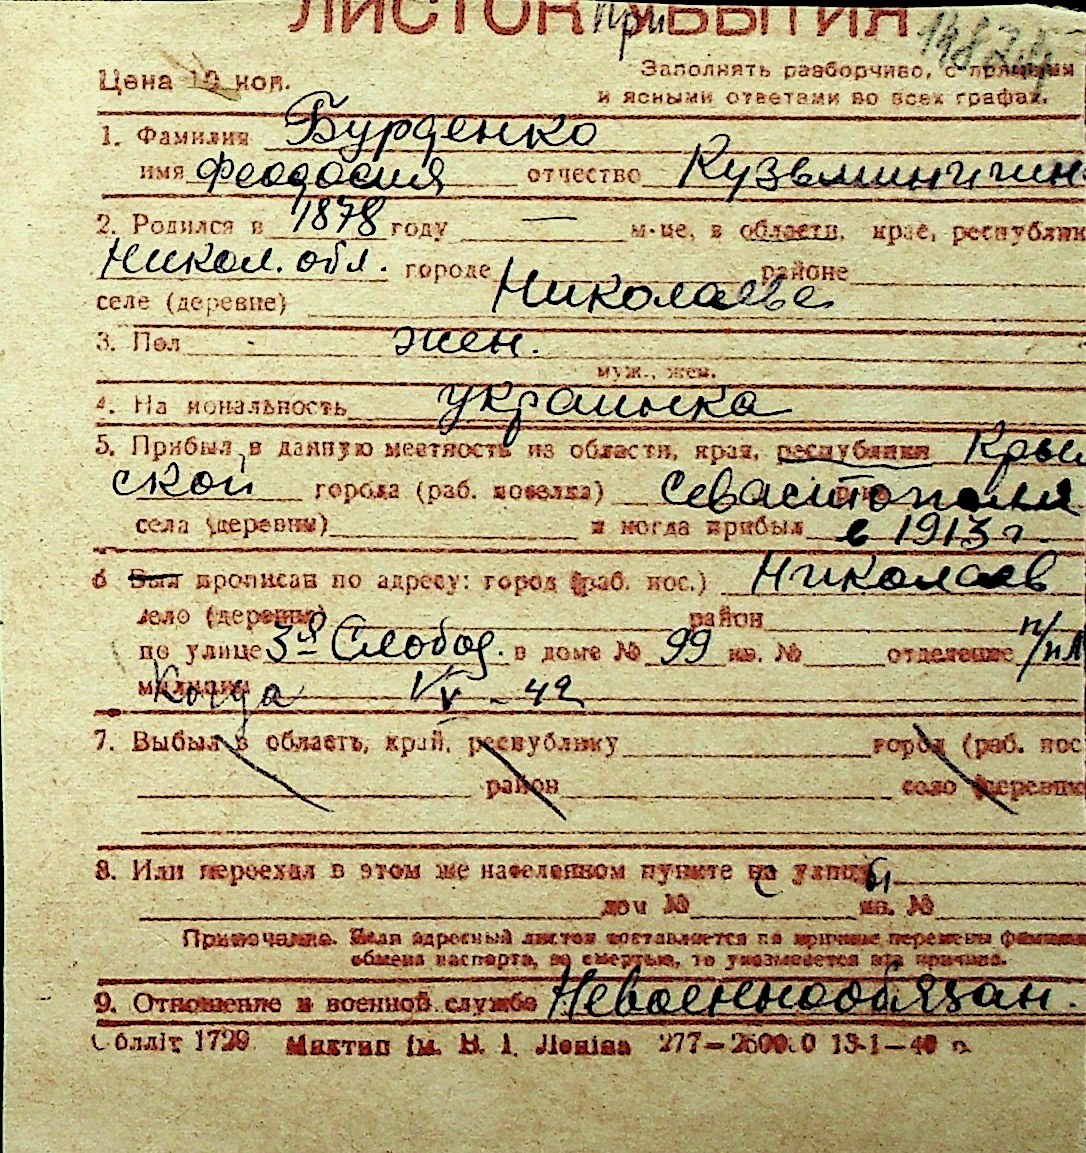 ЛИСТОК ПриБЫТИЯ
Цена 10 коп.
Заполнять разборчиво, с прямыми
и ясными ответами во всех графах.
1. Фамилия Бурденко
имя Феодосия отчество Кузьминичин
2. Родился в 1878 году — м-це, в области, крае, республик
Никол. обл. городе районе
селе (деревне) Николаеве
3. Пол жен.
муж., жен.
4. Национальность украинка
5. Прибыл в данную местность из области, края, республики Крым
ской города (раб. поселка) Севастополя
села (деревни) и когда прибыл в 1913 г.
6 Был прописан по адресу: город (раб. пос.) Николаев
село (деревня) район
по улице 3-я Слобод. в доме № 99 кв. № отделение п/пл
милиции Когда V - 42
7. Выбыл в область, край, республику город (раб. пос
район село (деревню
8. Или переехал в этом же населенном пункте с улицы
дом № кв. №
Примечание. Если адресный листок составляется по причине перемены фамилии
обмена паспорта, за смертью, то указывается эта причина.
9. Отношение к военной службе Невоеннообязан.
Обліт 1729 Миктип ім. В. І. Леніна 277—250000 13-1—40 р.